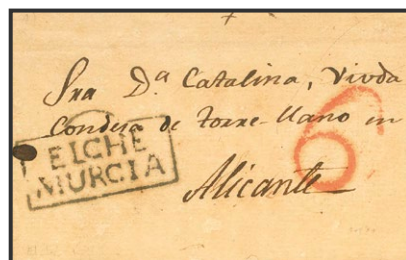 Sra D.ª Catalina, Viuda
Condesa de torre-llano en
6
ELCHE
MURCIA
Alicante